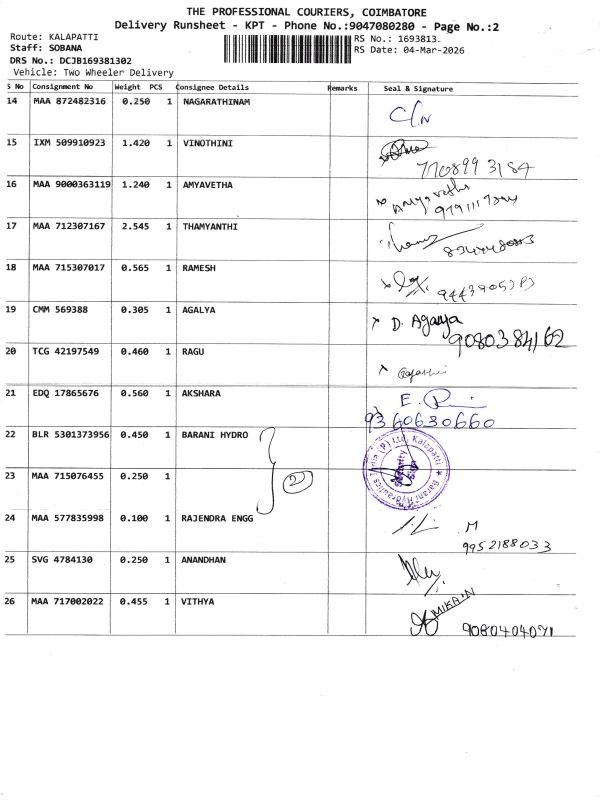 THE PROFESSIONAL COURIERS, COIMBATORE
Delivery Runsheet - KPT - Phone No.:9047080280 - Page No.:2
Route: KALAPATTI
RS No.: 1693813.
Staff: SOBANA
RS Date: 04-Mar-2026
DRS No.: DCJB169381302
Vehicle: Two Wheeler Delivery
S No Consignment No Weight PCS Consignee Details Remarks Seal & Signature
14 MAA 872482316 0.250 1 NAGARATHINAM
15 IXM 509910923 1.420 1 VINOTHINI
7708993184
16 MAA 9000363119 1.240 1 AMYAVETHA
Amyavetha
17 MAA 712307167 2.545 1 THAMYANTHI
18 MAA 715307017 0.565 1 RAMESH
19 CMM 569388 0.305 1 AGALYA
D. Agalya
9080384162
20 TCG 42197549 0.460 1 RAGU
21 EDQ 17865676 0.560 1 AKSHARA
E.
9360630660
22 BLR 5301373956 0.450 1 BARANI HYDRO
Barani Hydraulics India (P) Ltd, Kalapatti
Security
Sign
23 MAA 715076455 0.250 1
2
24 MAA 577835998 0.100 1 RAJENDRA ENGG
M
9952188033
25 SVG 4784130 0.250 1 ANANDHAN
26 MAA 717002022 0.455 1 VITHYA
9080404071